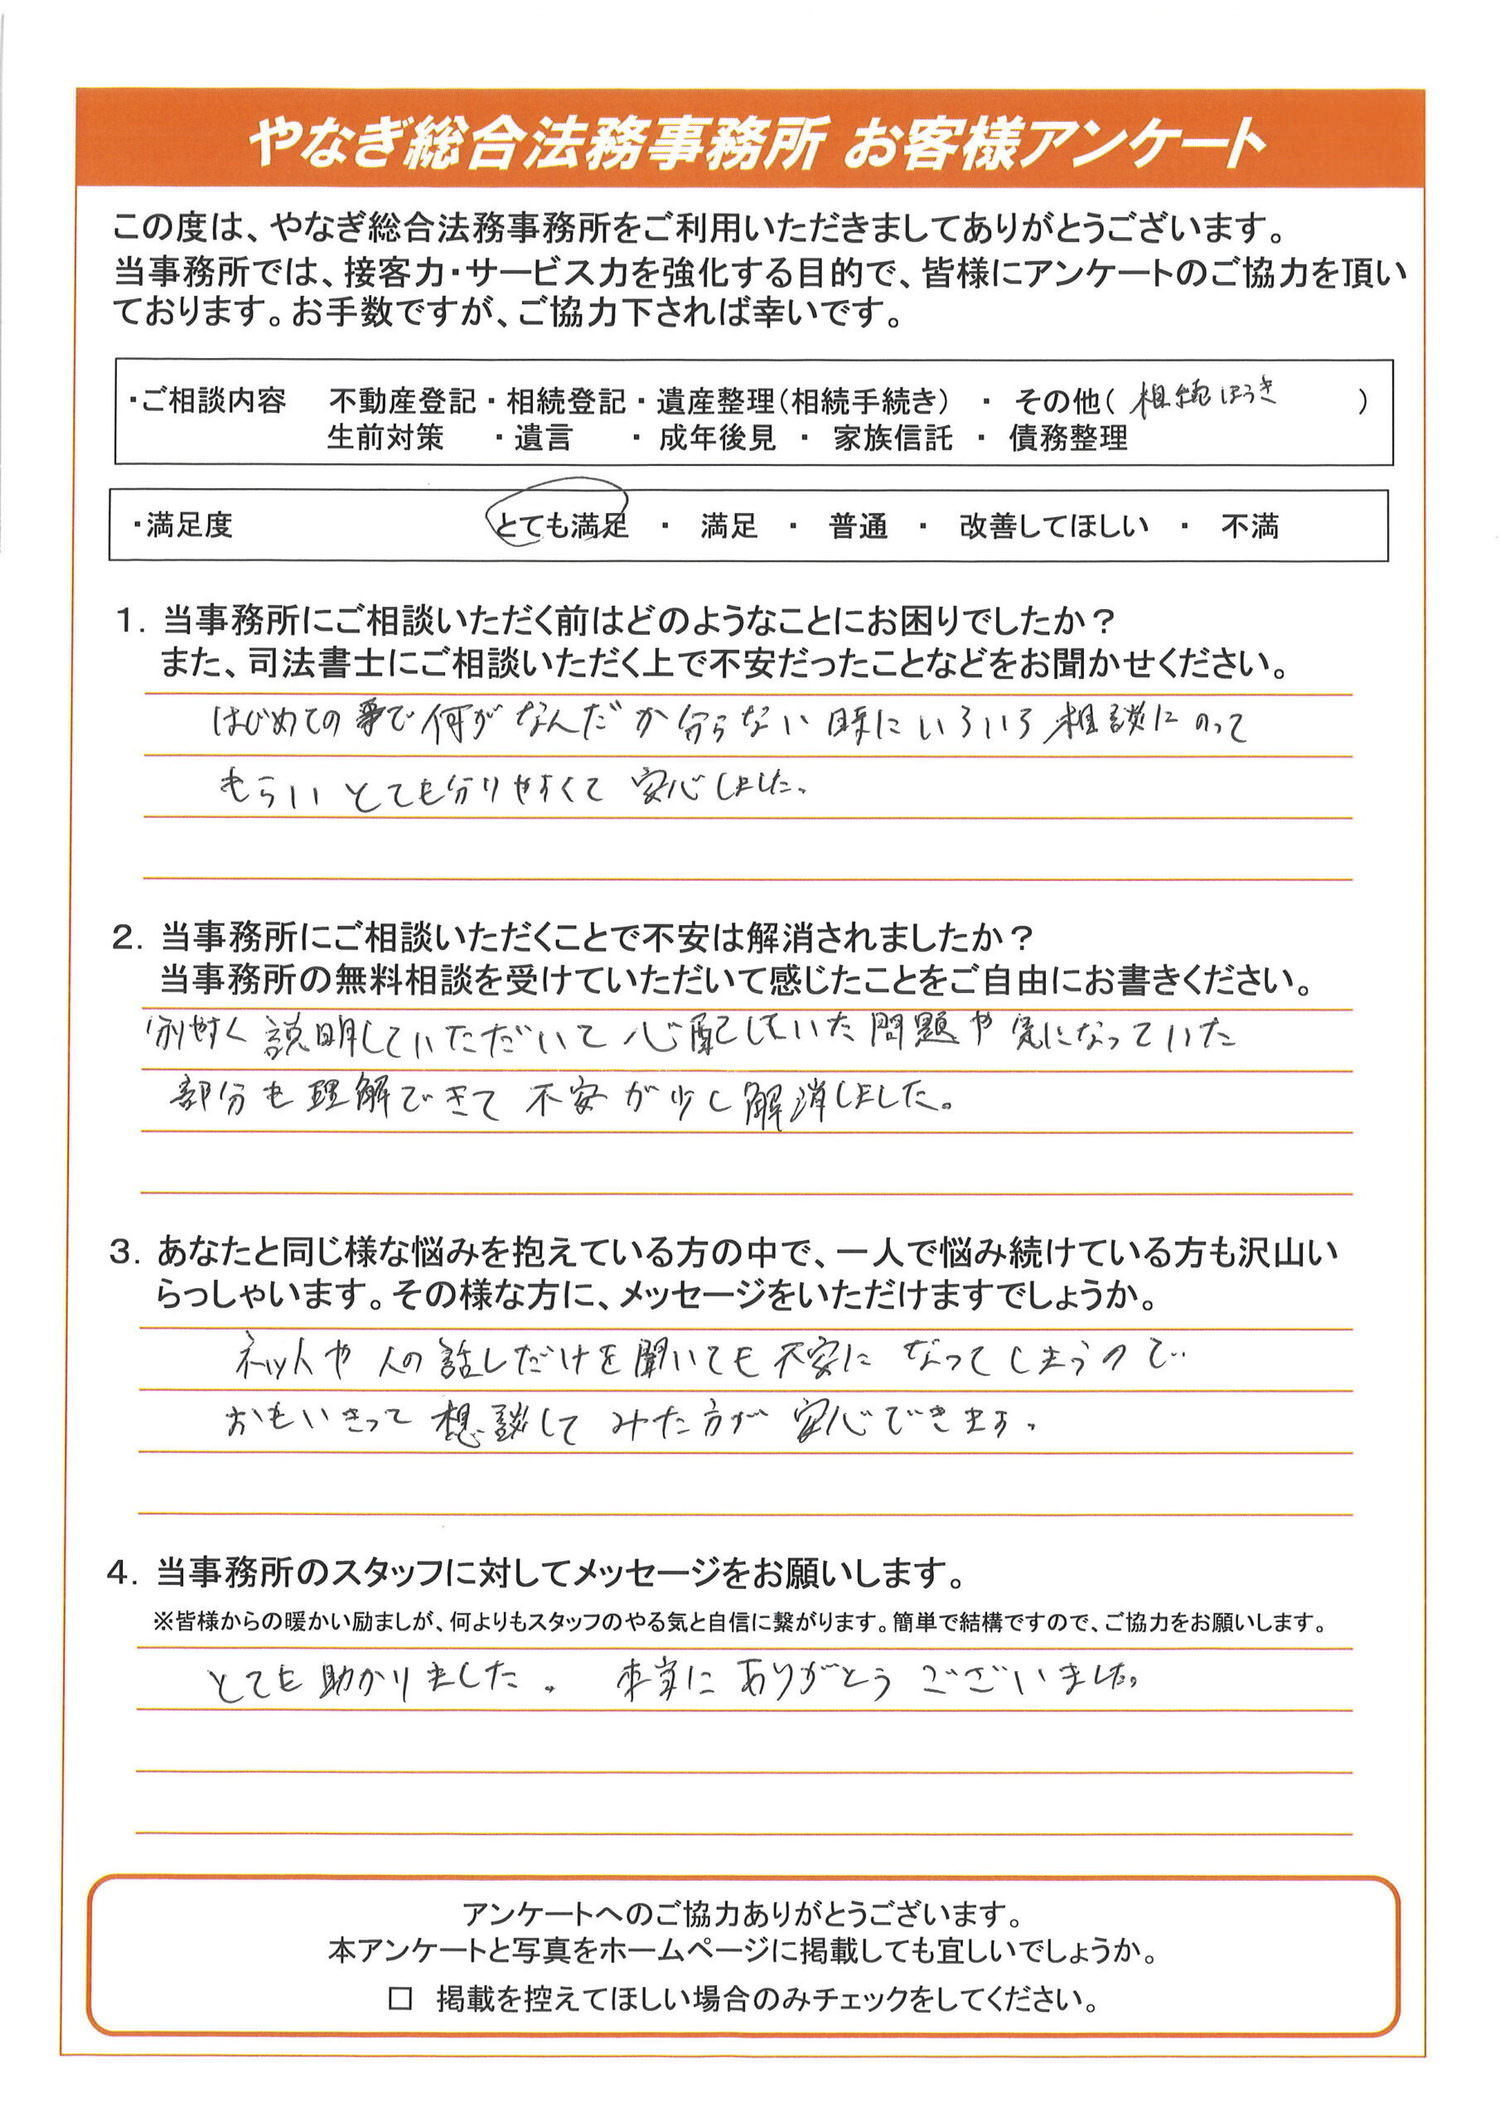 やなぎ総合法務事務所 お客様アンケート
この度は、やなぎ総合法務事務所をご利用いただきましてありがとうございます。
当事務所では、接客力・サービス力を強化する目的で、皆様にアンケートのご協力を頂い
ております。お手数ですが、ご協力下されば幸いです。
・ご相談内容 不動産登記・相続登記・遺産整理(相続手続き) ・ その他( 相続ほうき )
生前対策 ・遺言 ・成年後見 ・ 家族信託 ・ 債務整理
・満足度 とても満足 ・ 満足 ・ 普通 ・ 改善してほしい ・ 不満
1. 当事務所にご相談いただく前はどのようなことにお困りでしたか?
また、司法書士にご相談いただく上で不安だったことなどをお聞かせください。
はじめての事で何がなんだか分らない時にいろいろ相談にのって
もらいとても分りやすくて安心しました。
2. 当事務所にご相談いただくことで不安は解消されましたか?
当事務所の無料相談を受けていただいて感じたことをご自由にお書きください。
分りやすく説明していただいて心配していた問題や気になっていた
部分も理解できて不安が少し解消しました。
3. あなたと同じ様な悩みを抱えている方の中で、一人で悩み続けている方も沢山い
らっしゃいます。その様な方に、メッセージをいただけますでしょうか。
ネットや人の話しだけを聞いても不安になってしまうので
おもいきって想談してみた方が安心できます。
4. 当事務所のスタッフに対してメッセージをお願いします。
※皆様からの暖かい励ましが、何よりもスタッフのやる気と自信に繋がります。簡単で結構ですので、ご協力をお願いします。
とても助かりました。 本当にありがとうございました。
アンケートへのご協力ありがとうございます。
本アンケートと写真をホームページに掲載しても宜しいでしょうか。
□ 掲載を控えてほしい場合のみチェックをしてください。